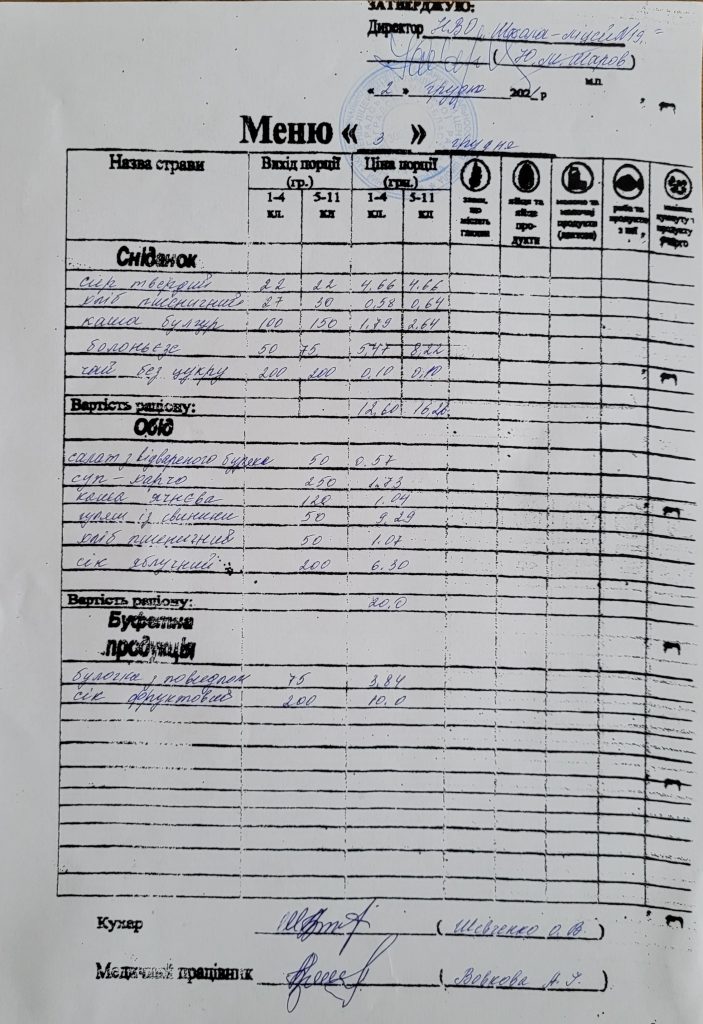 ЗАТВЕРДЖУЮ:
Директор НВО „Школа-музей N19"
( Ю.М. Таров )
м.п.
« 2 » грудня 2021 р
Меню « 3 » грудня
Назва страви Вихід порції (гр.) Ціна порції (грн.)
1-4 кл. 5-11 кл 1-4 кл. 5-11 кл
злаки, що містять глютен
яйця та яйце продукти
молоко та молочні продукти (лактоза)
риба та продукти з неї
Сніданок
сир твердий 22 22 4.66 4.66
хліб пшеничний 27 30 0.58 0,64
каша булгур 100 150 1.79 2.64
болоньєзе 50 75 5.47 8,22
чай без цукру 200 200 0,10 0,10
Вартість раціону: 12,60 16.26
Обід
салат з відвареного буряка 50 0.57
суп-харчо 250 1.73
каша ячнєва 120 1.04
гуляш із свинини 50 9.29
хліб пшеничний 50 1.07
сік яблучний 200 6.30
Вартість раціону: 20.0
Буфетна продукція
булочка з повидлом 75 3,84
сік фруктовий 200 10.0
Кухар ( Шевченко О.В. )
Медичний працівник ( Вовкова А.Г. )